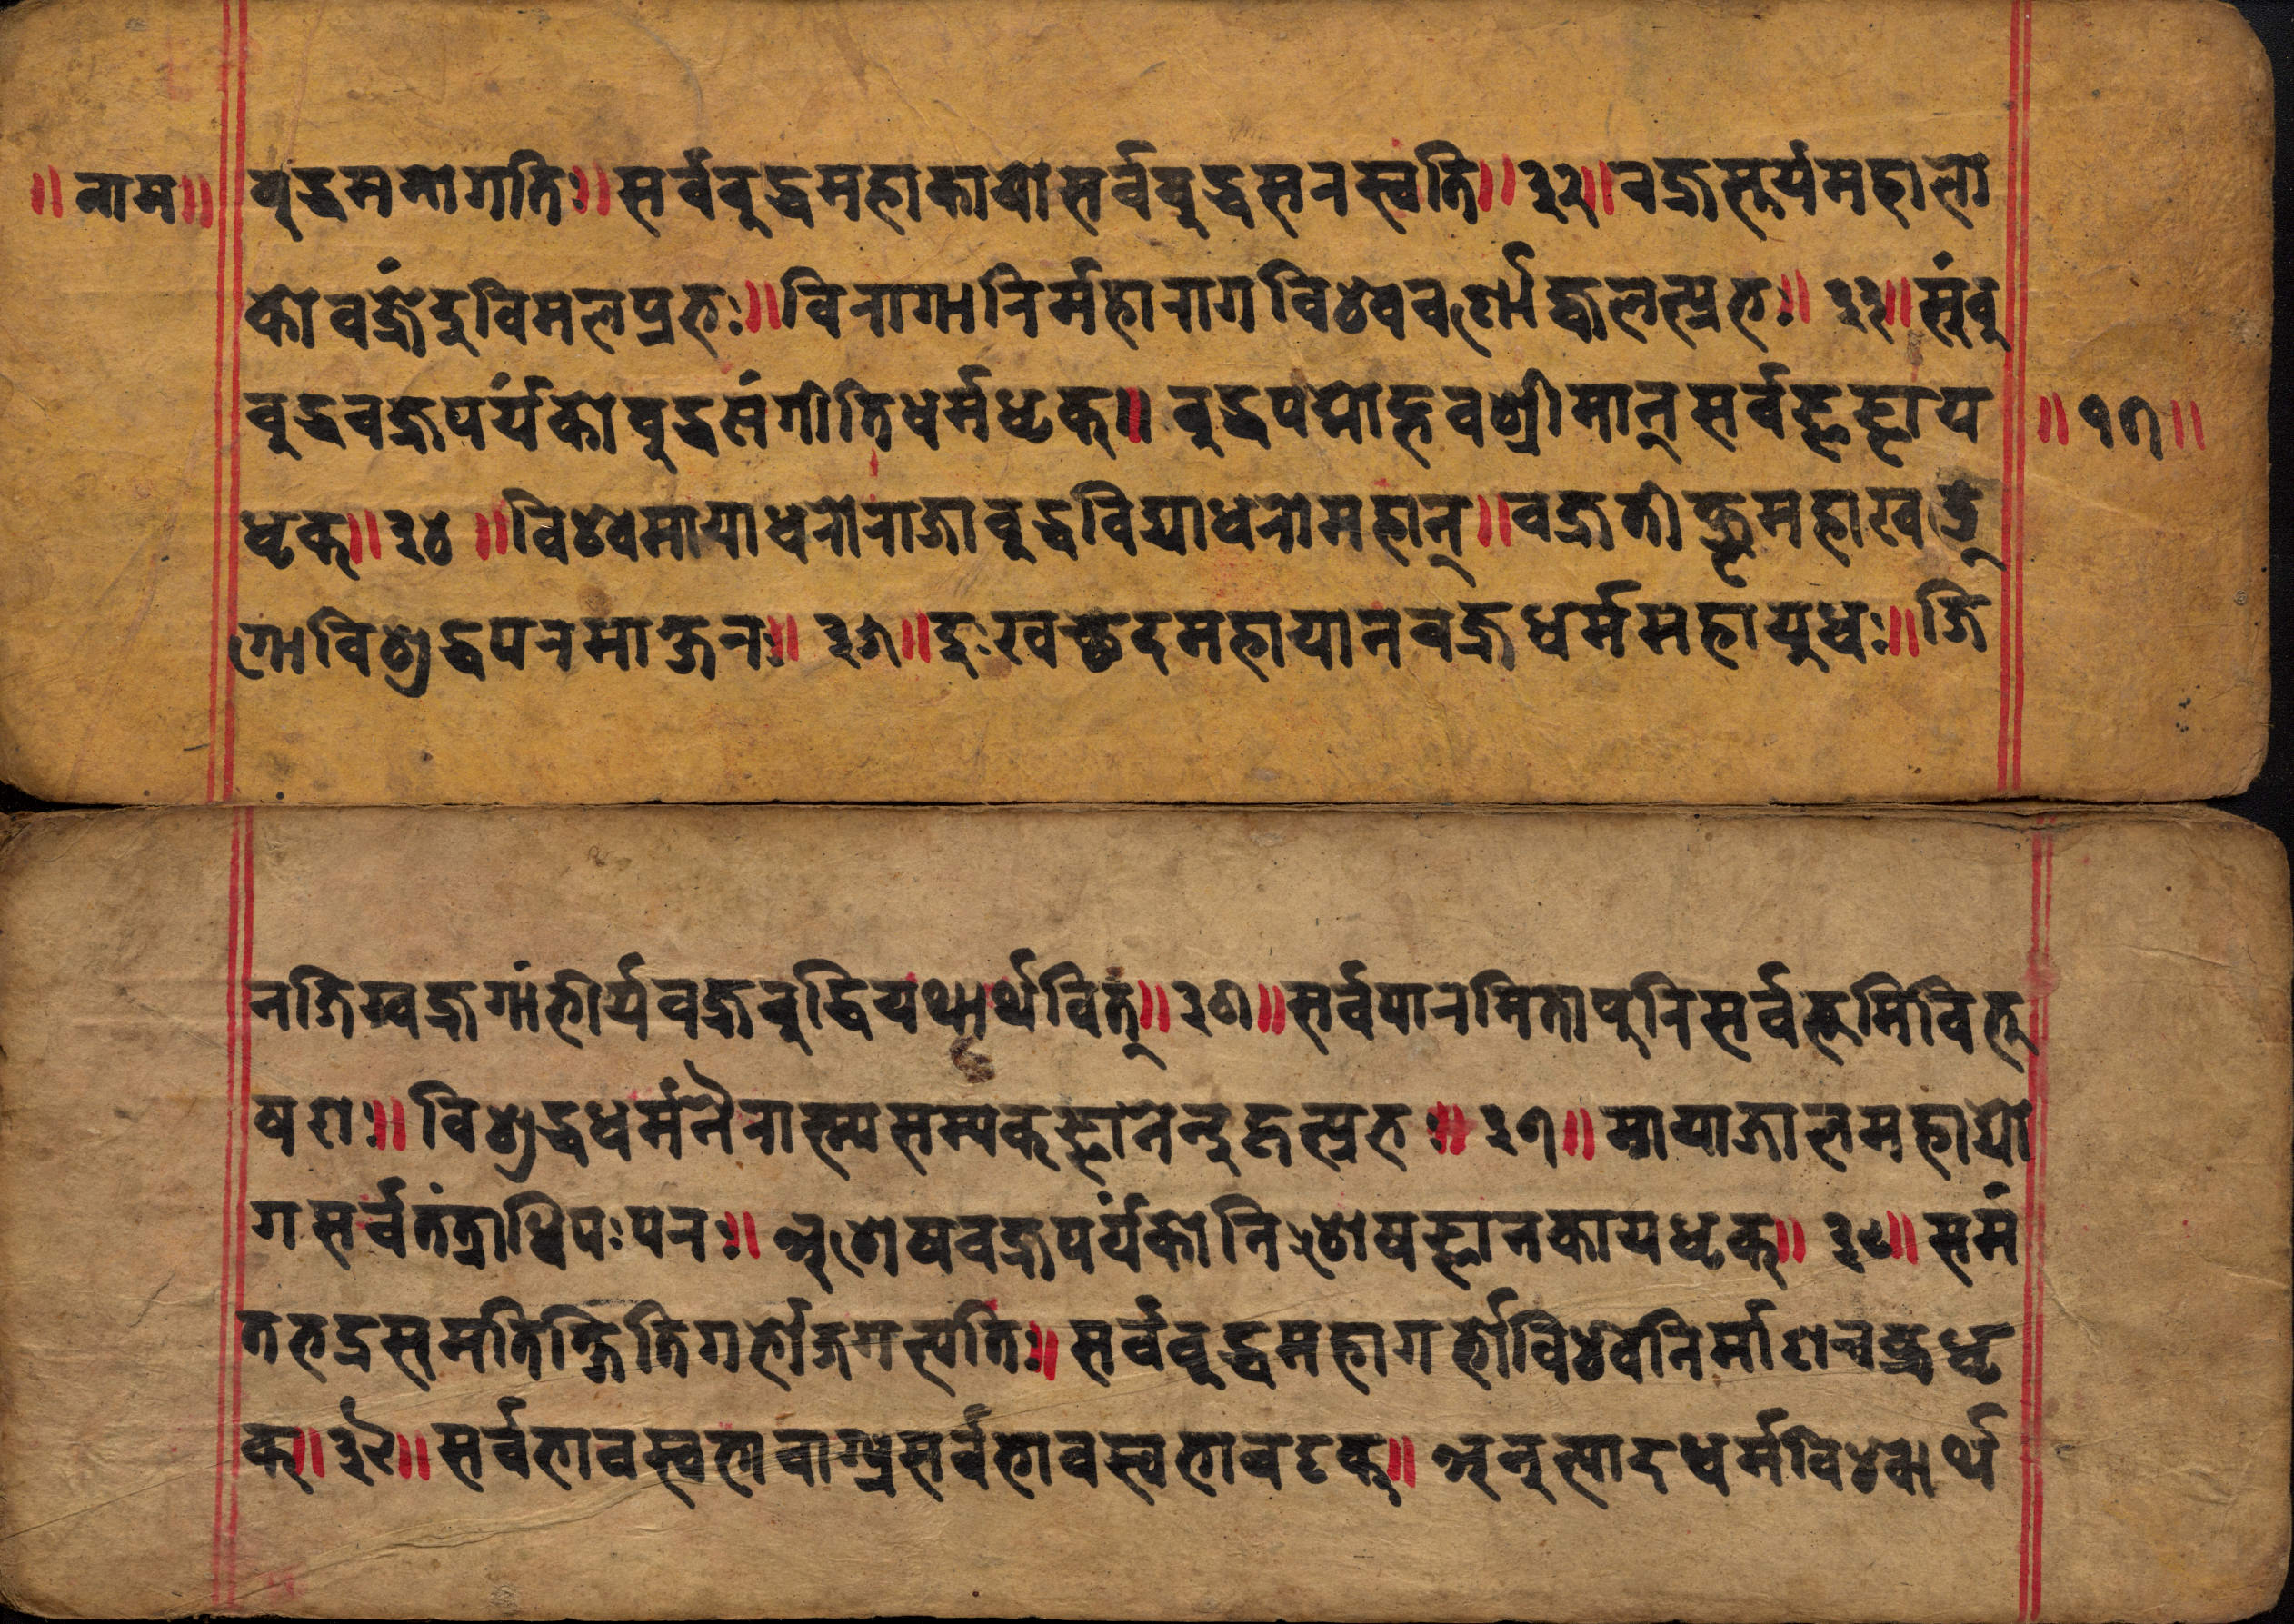 ॥ नाम ॥ बुद्धमनोगतिः॥सर्वबुद्धमहाकायोसर्वबुद्धसरस्वति॥३२॥वज्रसूर्यमहालो
कोवज्रेंदुविमलप्रभः॥विरागानिर्महारागविश्वेवर्णोज्वलत्प्रभः॥३३॥संबु
बुद्धवज्रपर्यंकोबुद्धसंगीतिधर्मधृक्॥बुद्धपद्मोद्भवश्रीमान्सर्वज्ञज्ञाय ॥१७॥
धृक्॥३४॥विश्वेमायाधरोराजाबुद्धविद्याधरोमहान्॥वज्रतीक्ष्णमहाखड्
गोविशुद्धपरमाक्षरः॥३५॥दुःखच्छेदमहायानवज्रधर्ममहायुधः॥जि
नजिग्वज्रगांभीर्यवज्रबुद्धियथार्थवित्॥३६॥सर्वपारमितापुरिसर्वभूमिविभू
षणः॥विशुद्धधर्मनैरात्म्यसम्यक्ज्ञानेन्दुहृत्प्रभः॥३७॥मायाजालमहाद्यो
गसर्वतंत्राधिपःपरः॥अशेषवज्रपर्यंकोनिःशेषज्ञानकायधृक्॥३८॥समं
तभद्रसमतिक्षितिगर्भोजगत्पतिः॥सर्वबुद्धमहागर्भोविश्वेनिर्माणचक्रधृ
क्॥३९॥सर्वभावस्वभावाग्र्यसर्वभावस्वभावदृक्॥अनुत्पादधर्मविश्वार्थ